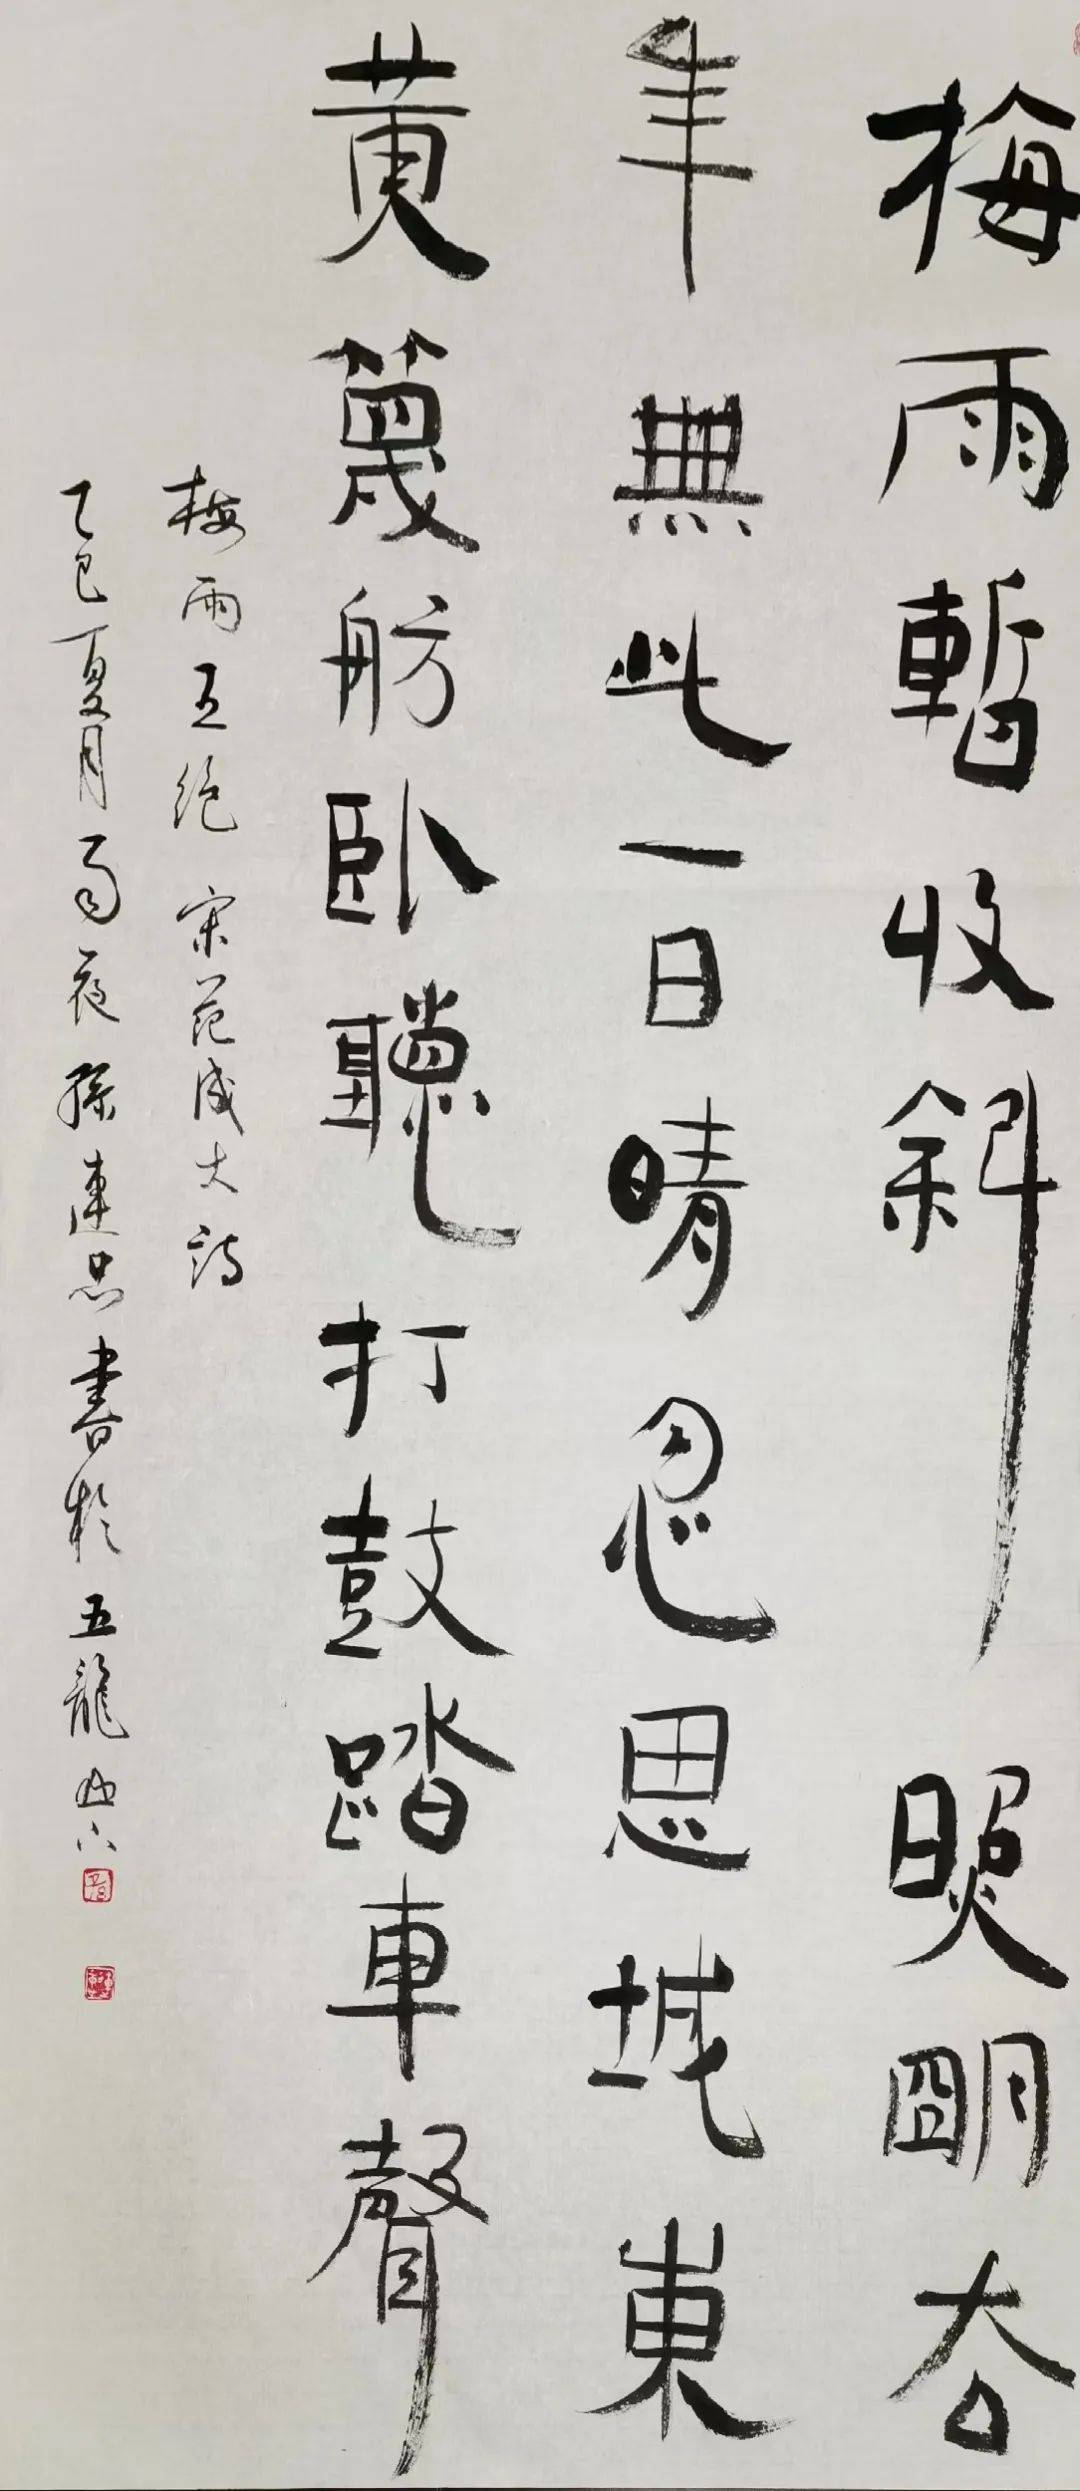 梅雨暫收斜照明去
年無此一日晴忽思城東
黄篾舫卧聽打鼓踏車聲
梅雨五绝 宋范成大詩
乙巳夏月雨夜孫連忠書於五龍